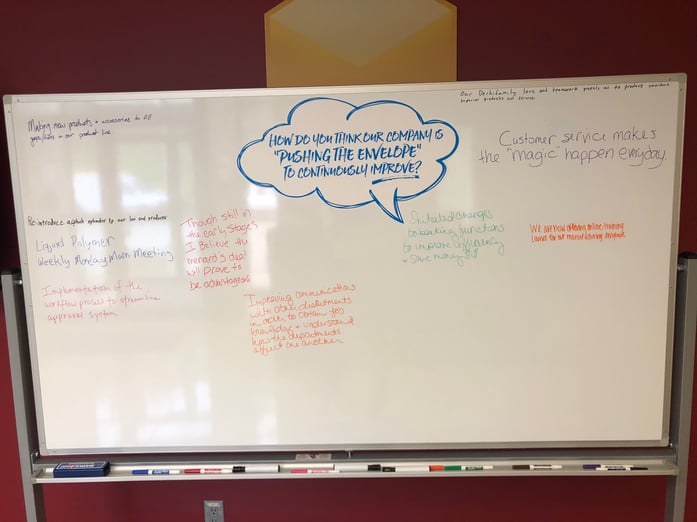 Our Derbifamily love and teamwork propels us to produce consistent
superior products and service.
Making new products + accessories to fill
gaps/holes in our product line.
HOW DO YOU THINK OUR COMPANY IS
"PUSHING THE ENVELOPE"
TO CONTINUOUSLY IMPROVE?
Customer service makes
the "magic" happen everyday.
Re-introduce asphalt extender to our low end products
Liquid Polymer
Weekly Monday Morn Meeting
Implementation of the
workflow process to streamline
approval system
Though still in
the early stages
I Believe the
menard's deal
will prove to
be advantageous
Initiated changes
to banking functions
to improve efficiency
+ save money!!
We are now offering online training
for our manufacturing
Improving communications
with other departments
in order to obtain job
knowledge + understand
how the departments
effect one another